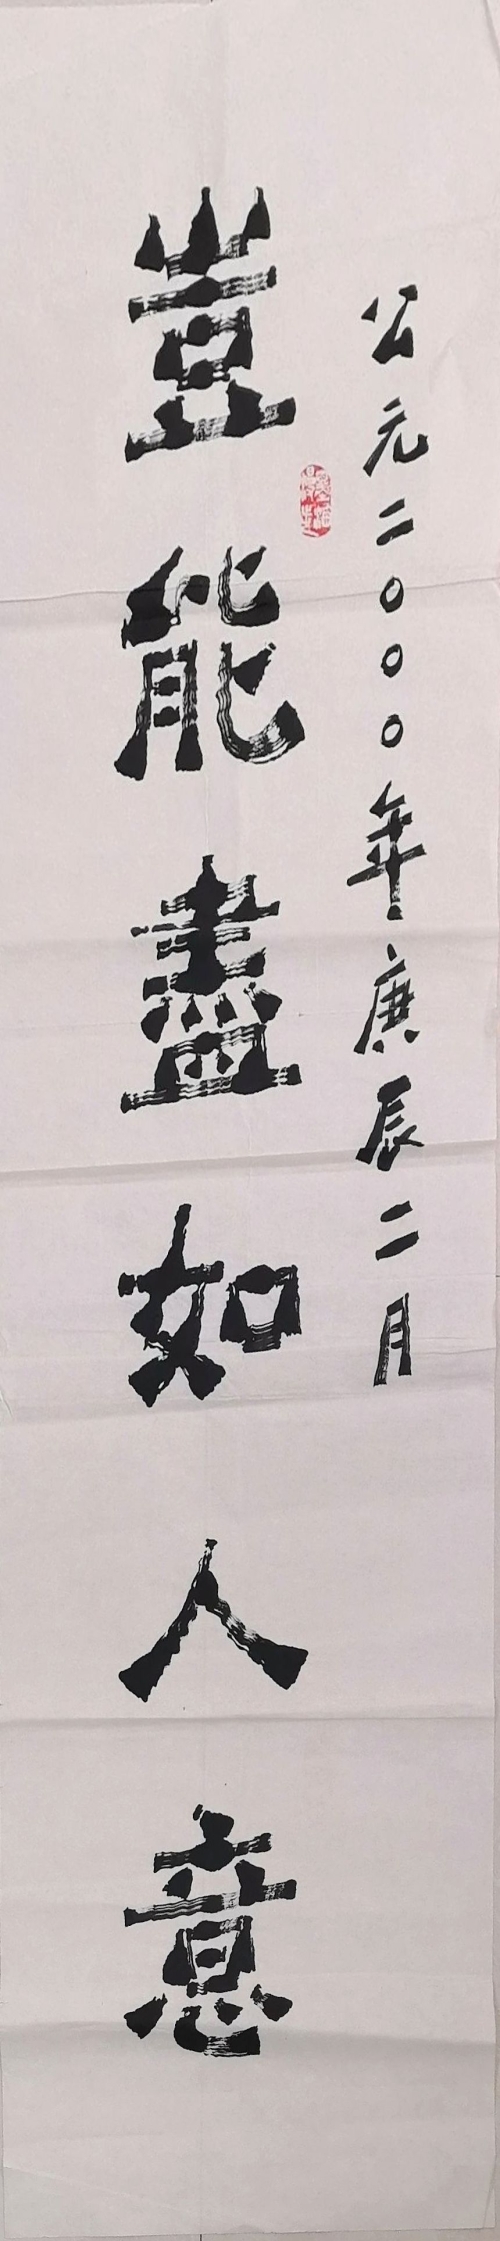 公元二〇〇〇年庚辰二月
豈能盡如人意